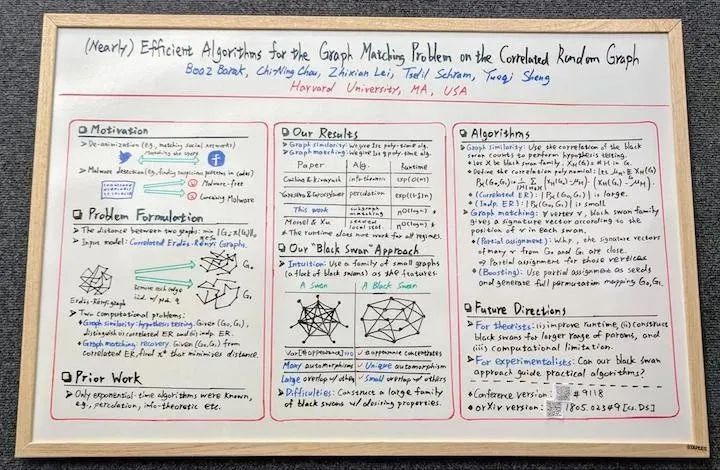 (Nearly) Efficient Algorithms for the Graph Matching Problem on the Correlated Random Graph
Boaz Barak, Chi-Ning Chou, Zhixian Lei, Tselil Schramm, Yueqi Sheng
Harvard University, MA, USA
Motivation
De-anonimization (e.g., matching social networks)
matching the users
Malware detection (e.g., finding suspicious patterns in codes)
Malware-free
Containing Malware
Problem Formulation
The distance between two graphs: min ||G₀ - π(G₁)||
Input model: Correlated Erdős-Rényi Graphs.
G₀
remove each edge
i.i.d. w.p.
G₁
Erdős-Rényi graph
Two computational problems:
Graph similarity: hypothesis testing. Given (G₀,G₁),
distinguish (i) correlated ER and (ii) indp. ER.
Graph matching: recovery. Given (G₀,G₁) from
correlated ER, find π* that minimizes distance.
Prior Work
Only exponential-time algorithms were known,
e.g., percolation, info-theoretic etc.
Our Results
Graph similarity: We give 1st poly-time alg.
Graph matching: We give 1st poly-time alg.
Paper Alg. Runtime
Cullina & Kiyavash info-theoretic exp(O(n))
Yartseva & Grossglauser percolation
This work subgraph matching n^O(log n) *
Mossel & Xu seeded local stat. n^O(log n) *
* The runtime does not work for all regimes.
Our "Black Swan" Approach
Intuition: Use a family of small graphs
(a flock of black swans) as the features.
A Swan A Black Swan
# appearance concentrates
Many automorphism Unique automorphism
Large overlap w/ others Small overlap w/ others
Difficulties: Construct a large family
of black swans w/ desiring properties.
Algorithms
Graph similarity: Use the correlation of the black
swan counts to perform hypothesis testing.
Let H be black swan family, X_H(G) = # H in G.
Define the correlation polynomial: Let
(Correlated ER): |P_H(G₀,G₁)| is large.
(Indp. ER): |P_H(G₀,G₁)| is small.
Graph matching: ∀ vertex v, black swan family
gives a signature vector according to the
position of v in each swan.
(Partial assignment): W.h.p., the signature vectors
of many v from G₀ and G₁ are close.
⇒ Partial assignment for those vertices
(Boosting): Use partial assignment as seeds
and generate full permutation mapping G₀, G₁.
Future Directions
For theorists: (i) improve runtime, (ii) construct
black swans for larger range of params, and
(iii) computational limitation.
For experimentalists: Can our black swan
approach guide practical algorithms?
Conference version: #9118
arXiv version: 1805.02349 [cs.DS]
STAPLES